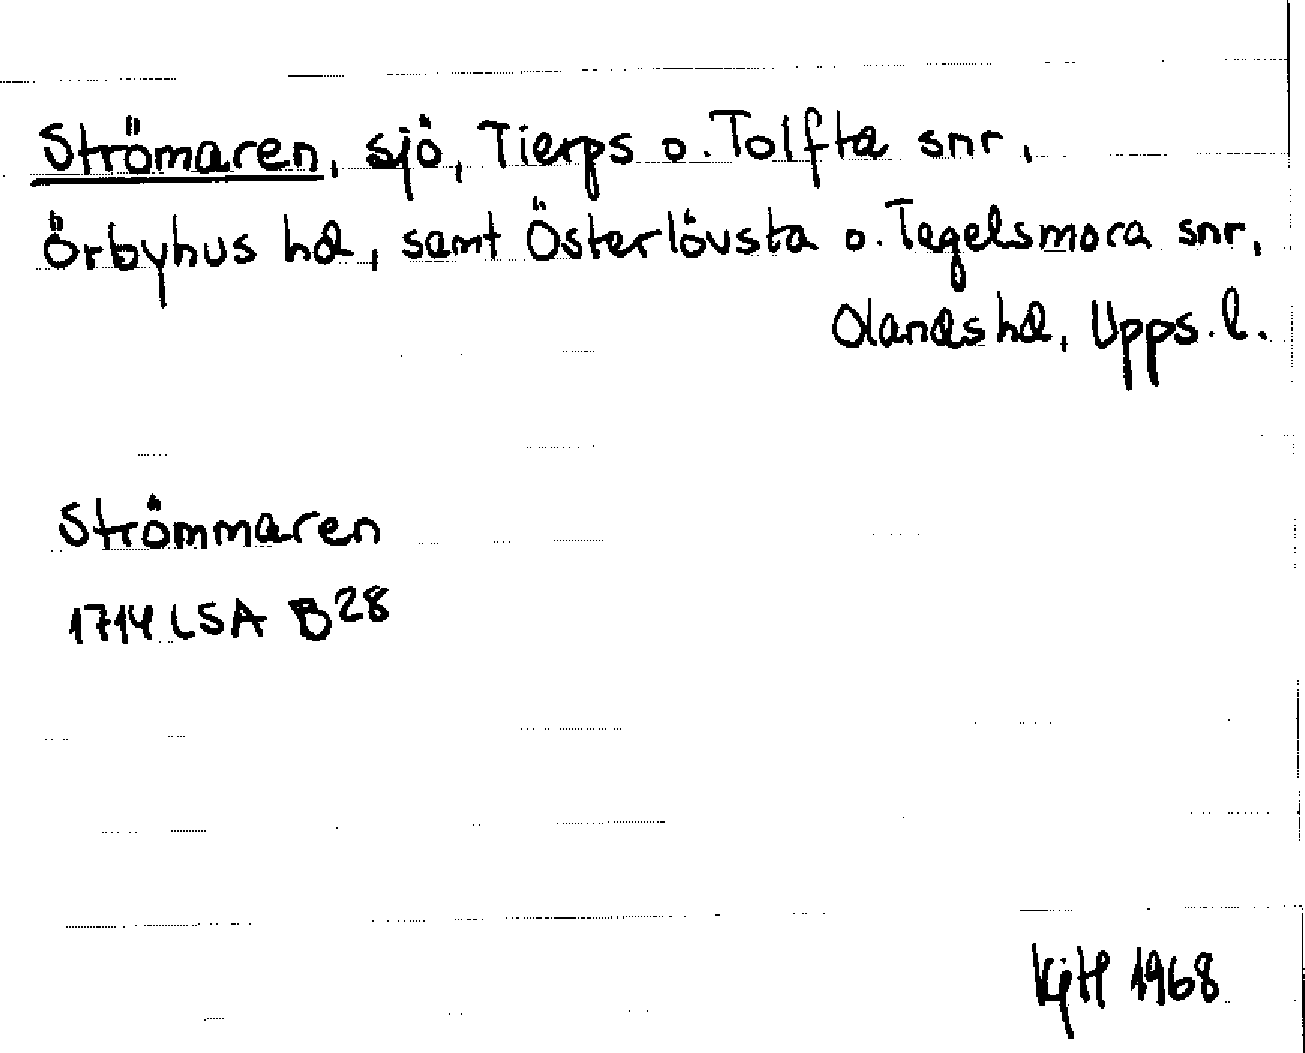 Strömaren, sjö, Tierps o. Tolfta snr,
Örbyhus hd, samt Österlövsta o. Tegelsmora snr,
Olands hd, Upps. l.
Strömmaren
1714 LSA B28
KjH 1968